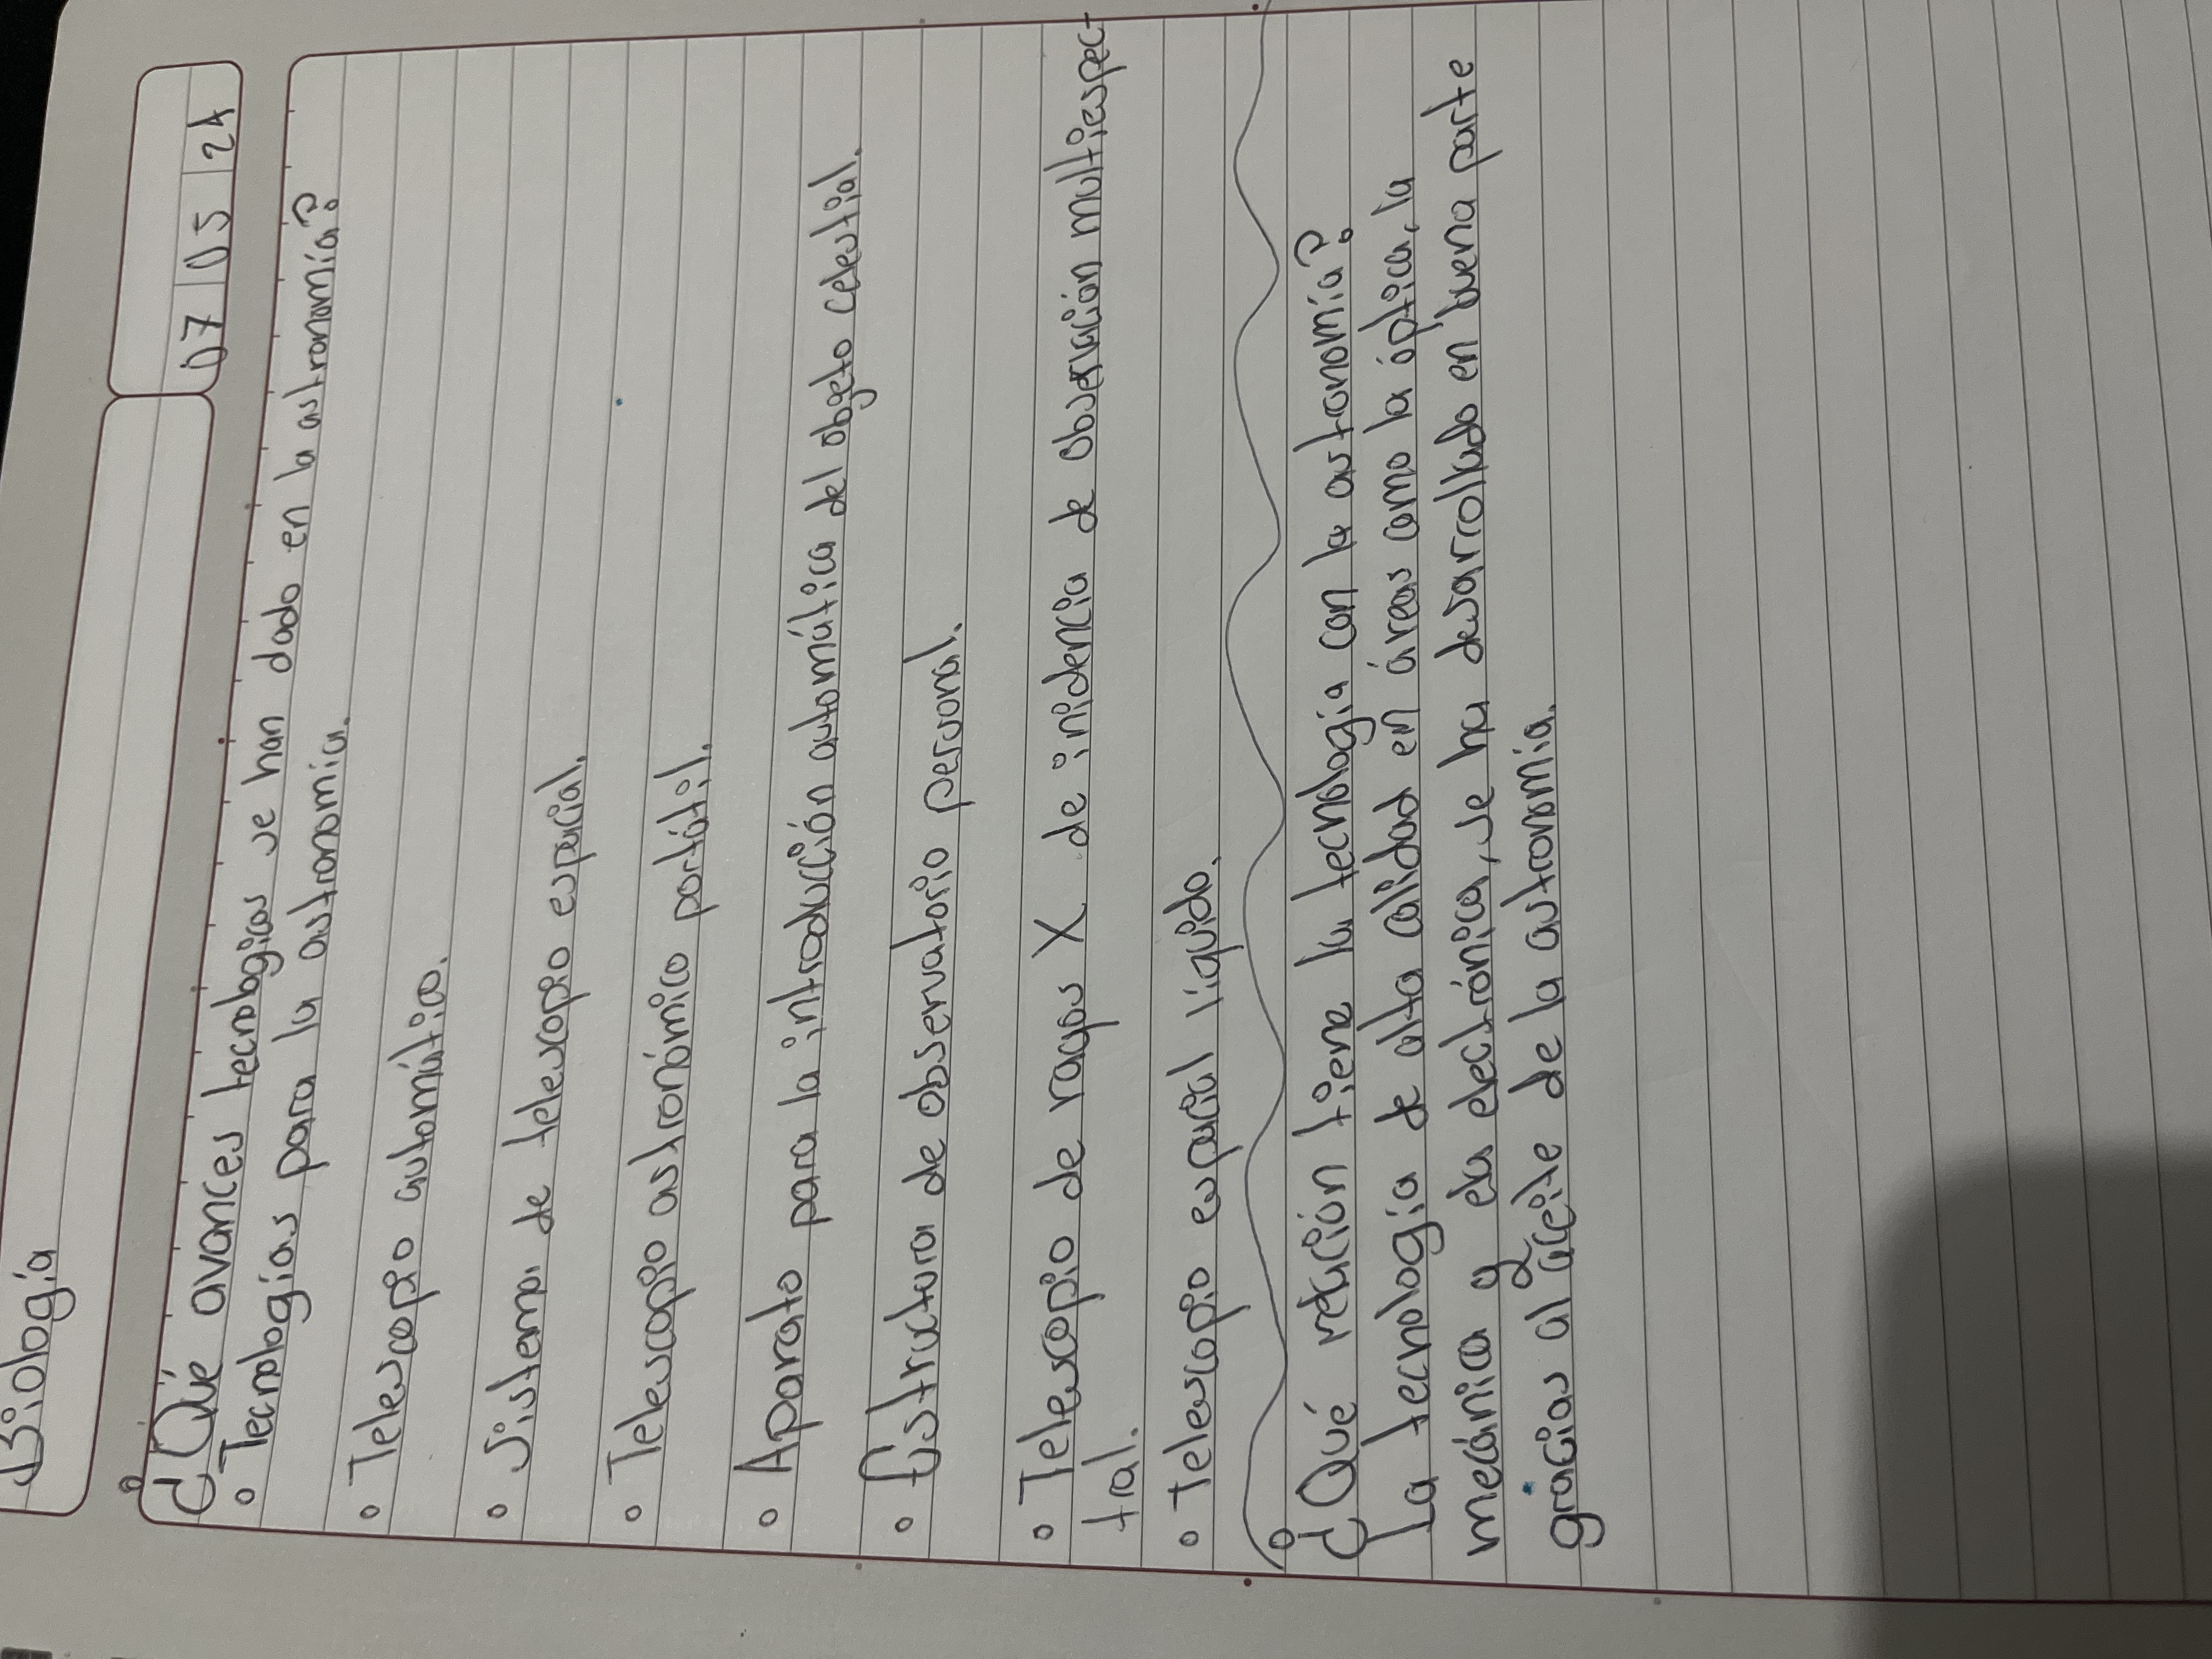 Biología
07 05 24
¿Qué avances tecnologicos se han dado en la astronomía?
• Tecnologías para la astronomía.
• Telescopio automático.
• Sistema de telescopio espacial.
• Telescopio astronómico portátil.
• Aparato para la introducción automática del objeto celestial.
• Estructura de observatorio personal.
• Telescopio de rayos X de inidencia de observación multiespec-
tral.
• Telescopio espacial líquido.
¿Qué relación tiene la tecnología con la astronomía?
La tecnología de alta calidad en áreas como la óptica, la
mecánica y ela electrónica, se ha desarrollado en buena parte
gracias al aceite de la astronomía.